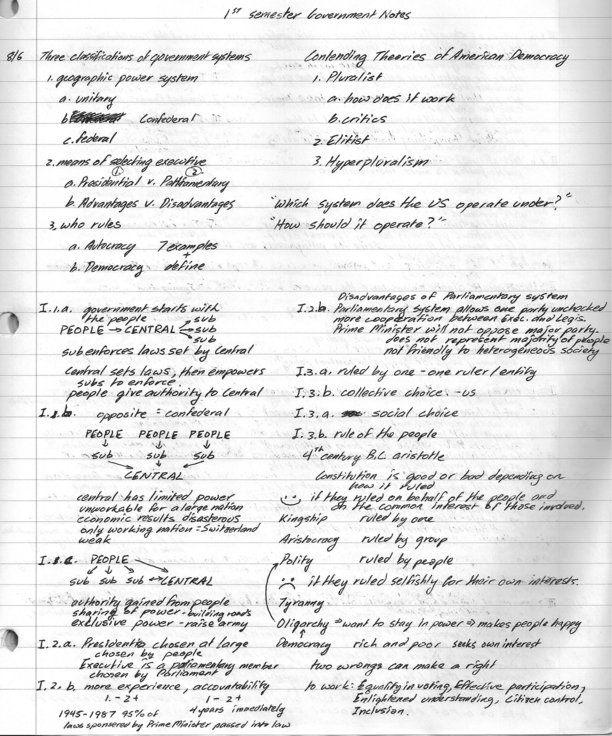 1st semester Government Notes
8/6 Three classifications of government systems
1. geographic power system
a. unitary
b. Confederal
c. federal
2. means of selecting executive
① ②
a. Presidential v. Parliamentary
b. Advantages v. Disadvantages
3. who rules
a. Autocracy 7 examples
+
b. Democracy define
Contending Theories of American Democracy
1. Pluralist
a. how does it work
b. critics
2. Elitist
3. Hyperpluralism
"Which system does the US operate under?"
"How should it operate?"
I.1.a. government starts with
the people sub
PEOPLE → CENTRAL sub
sub
sub enforces laws set by Central
Central sets laws, then empowers
subs to enforce.
people give authority to Central
I.1.b. opposite = confederal
PEOPLE PEOPLE PEOPLE
sub sub sub
CENTRAL
central has limited power
unworkable for a large nation
economic results disasterous
only working nation = Switzerland
weak
I.1.c. PEOPLE
sub sub sub ↔ CENTRAL
authority gained from people
sharing of power - building roads
exclusive power - raise army
I.2.a. President is chosen at large
chosen by people
Executive is a parliamentary member
chosen by Parliament
I.2.b. more experience, accountability
1. - 2+ 1 - 2+
1945-1987 95% of 4 years immediately
laws sponsered by Prime Minister passed into law
Disadvantages of Parliamentary system
I.2.b. Parliamentary system allows one party unchecked
more cooperation between Exec. and Legis.
Prime Minister will not oppose major party.
does not represent majority of people
not friendly to heterogeneous society
I.3.a. ruled by one - one ruler/entity
I.3.b. collective choice. -us
I.3.a. social choice
I.3.b. rule of the people
4th century B.C. aristotle
Constitution is good or bad depending on
how it ruled
if they ruled on behalf of the people and
on the common interest of those involved.
Kingship ruled by one
Aristocracy ruled by group
Polity ruled by people
if they ruled selfishly for their own interests.
Tyranny
Oligarchy → want to stay in power → makes people happy
Democracy rich and poor seeks own interest
two wrongs can make a right
to work: Equality in voting, Effective participation,
Enlightened understanding, Citizen control,
Inclusion.